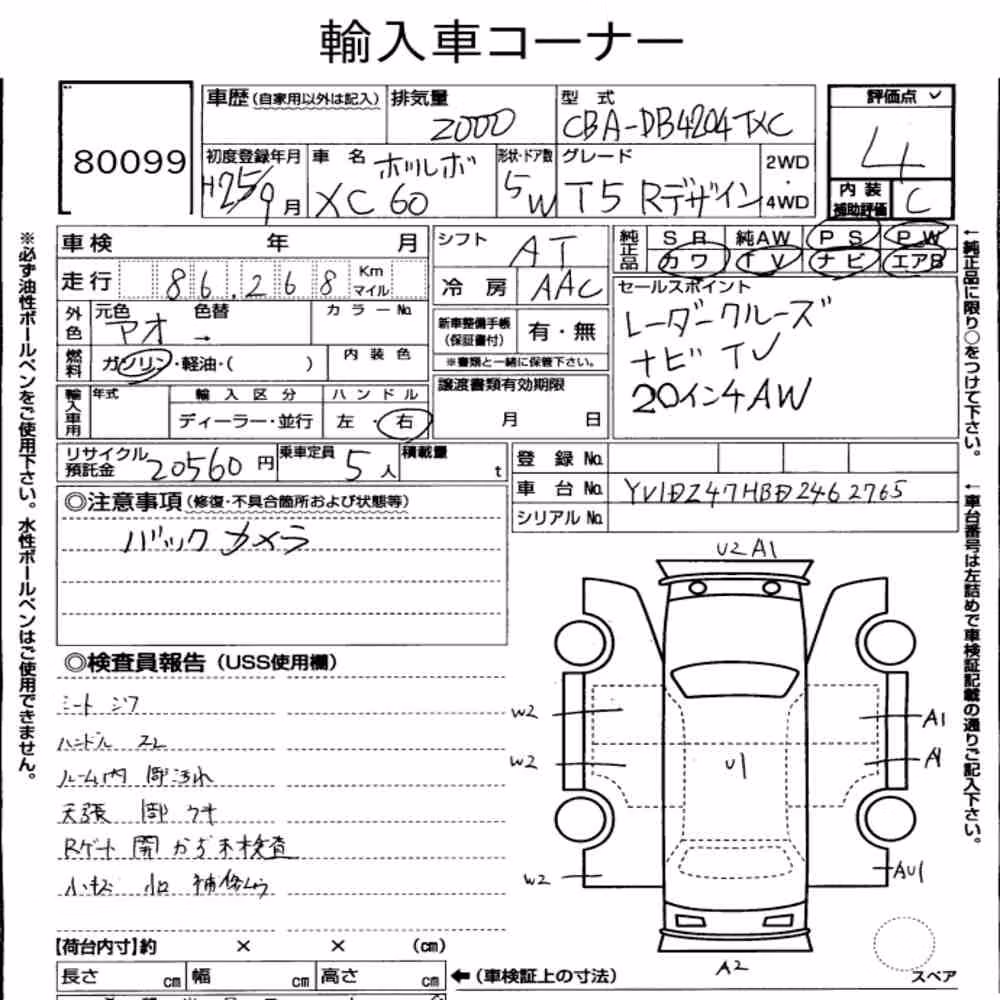 輸入車コーナー
80099
車歴(自家用以外は記入) 排気量 2000 型式 CBA-DB4204TXC
評価点 4
初度登録年月 H25/9月 車名 ボルボ XC60 形状・ドア数 5W グレード T5 Rデザイン 2WD・4WD
内装補助評価 C
車検 年 月 シフト AT
純正品 SR 純AW PS PW
カワ TV ナビ エアB
走行 86.268 Km マイル 冷房 AAC
セールスポイント
レーダークルーズ
ナビ TV
20インチAW
外色 元色 アオ 色替 → カラーNo.
新車整備手帳(保証書付) 有・無
※書類と一緒に保管下さい。
燃料 ガソリン・軽油・( ) 内装色
譲渡書類有効期限 月 日
輸入車用 年式 輸入区分 ディーラー・並行 ハンドル 左・右
リサイクル預託金 20560円 乗車定員 5人 積載量 t
登録No.
車台No. YV1DZ47HBD2462765
シリアルNo.
◎注意事項(修復・不具合箇所および状態等)
バックカメラ
◎検査員報告(USS使用欄)
シート シワ
ハンドル スレ
ルーム内 部汚れ
天張 部 クサ
Rゲート 開 かず未検査
小キズ 小凹 補修ムラ
U2 A1
W2
A1
W2
U1
A1
W2
AU1
A2
スペア
【荷台内寸】約 × × (cm)
長さ cm 幅 cm 高さ cm ←(車検証上の寸法)
※必ず油性ボールペンをご使用下さい。水性ボールペンはご使用できません。
←純正品に限り○をつけて下さい。
←車台番号は左詰めで車検証記載の通りご記入下さい。